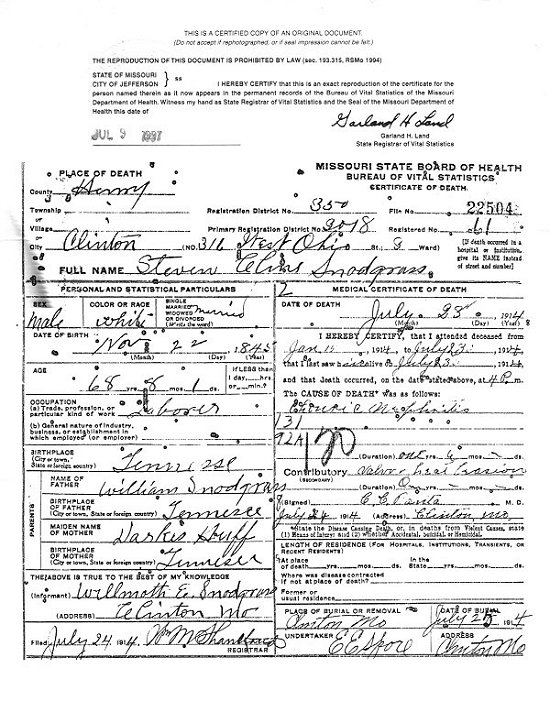 THIS IS A CERTIFIED COPY OF AN ORIGINAL DOCUMENT.
(Do not accept if rephotographed, or if seal impression cannot be felt.)
THE REPRODUCTION OF THIS DOCUMENT IS PROHIBITED BY LAW (sec. 193.315, RSMo 1994)
STATE OF MISSOURI
CITY OF JEFFERSON } ss I HEREBY CERTIFY that this is an exact reproduction of the certificate for the
person named therein as it now appears in the permanent records of the Bureau of Vital Statistics of the Missouri
Department of Health. Witness my hand as State Registrar of Vital Statistics and the Seal of the Missouri Department of
Health this date of
JUL 9 1997
Garland H Land
Garland H. Land
State Registrar of Vital Statistics
MISSOURI STATE BOARD OF HEALTH
BUREAU OF VITAL STATISTICS
CERTIFICATE OF DEATH
PLACE OF DEATH
County Henry
Township
Registration District No. 350
File No. 22504
Village
Primary Registration District No. 3018
Registered No. 61
City Clinton (NO. 316 West Ohio St; 3 Ward)
[If death occurred in a hospital or institution, give its NAME instead of street and number]
FULL NAME Steven Snodgrass
PERSONAL AND STATISTICAL PARTICULARS
SEX Male
COLOR OR RACE White
SINGLE MARRIED WIDOWED OR DIVORCED (Write the word) Married
DATE OF BIRTH Nov 22 1845
(Month) (Day) (Year)
AGE 68 yrs. 8 mos. 1 ds.
If LESS than 1 day, hrs or min.?
OCCUPATION
(a) Trade, profession, or particular kind of work Laborer
(b) General nature of industry, business, or establishment in which employed (or employer)
BIRTHPLACE
(City or town, State or foreign country)
NAME OF FATHER William Snodgrass
PARENTS
BIRTHPLACE OF FATHER
(City or town, State or foreign country) Tennesee
MAIDEN NAME OF MOTHER Huff
BIRTHPLACE OF MOTHER
(City or town, State or foreign country)
THE ABOVE IS TRUE TO THE BEST OF MY KNOWLEDGE
(Informant) E. Snodgrass
(ADDRESS) Clinton Mo
Filed July 24 1914
REGISTRAR
MEDICAL CERTIFICATE OF DEATH
DATE OF DEATH July 1914
(Month) (Day) (Year)
I HEREBY CERTIFY, that I attended deceased from
Jan 1914 to July 23 1914
that I last saw alive on July 23 1914
and that death occurred, on the date stated above, at m.
The CAUSE OF DEATH was as follows:
131
92A
(Duration) yrs. mos. ds.
Contributory
(SECONDARY)
(Duration) yrs. mos. ds.
(Signed) M. D.
July 24 1914 (Address) Clinton Mo,
State the Disease Causing Death, or, in deaths from Violent Causes, state
(1) Means of Injury; and (2) whether Accidental, Suicidal, or Homicidal.
LENGTH OF RESIDENCE (For Hospitals, Institutions, Transients, or Recent Residents)
At place of death yrs. mos. ds. In the State yrs. mos. ds.
Where was disease contracted
if not at place of death?
Former or
usual residence
PLACE OF BURIAL OR REMOVAL Clinton Mo
DATE OF BURIAL July 25 1914
UNDERTAKER
ADDRESS Clinton Mo